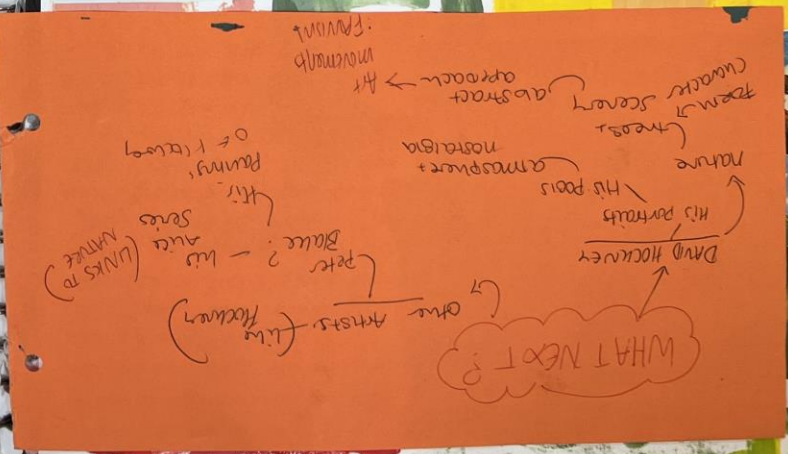 WHAT NEXT?
DAVID HOCKNEY
His portraits
His pools
nature
trees +
scenery
atmosphere +
nostalgia
abstract
aproach → Art
movements
: FAUVISM
other Artists - (like
Hockney)
Peter
Blake? - his
Alice
Series
(LINKS TO
NATURE)
His